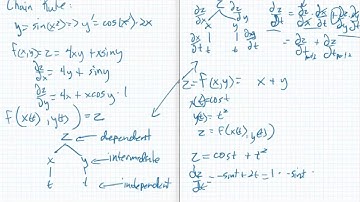 Chain Rule:
y = sin(x²) => y' = cos(x²)·2x
f(x,y) = z = 4xy + xsiny
∂z/∂x = 4y + siny
∂z/∂y = 4x + xcosy·1
f(x(t), y(t)) = z
z → dependent
x y → intermediate
t t → independent
∂z/∂x z ∂z/∂y
∂x/∂t x y
t t
z = f(x,y) = x + y
x(t) = cost
y(t) = t²
z = f(x(t), y(t))
z = cost + t²
dz/dt = -sint + 2t = 1·-sint +